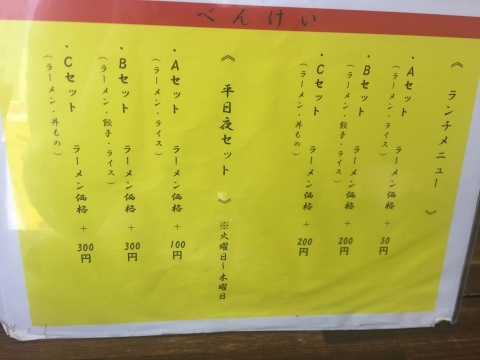 べんけい
《 ランチメニュー 》
・Aセット ラーメン価格 + 50円
(ラーメン・ライス)
・Bセット ラーメン価格 + 200円
(ラーメン・餃子・ライス)
・Cセット ラーメン価格 + 200円
(ラーメン・丼もの)
《 平日夜セット 》 ※火曜日~木曜日
・Aセット ラーメン価格 + 100円
(ラーメン・ライス)
・Bセット ラーメン価格 + 300円
(ラーメン・餃子・ライス)
・Cセット ラーメン価格 + 300円
(ラーメン・丼もの)